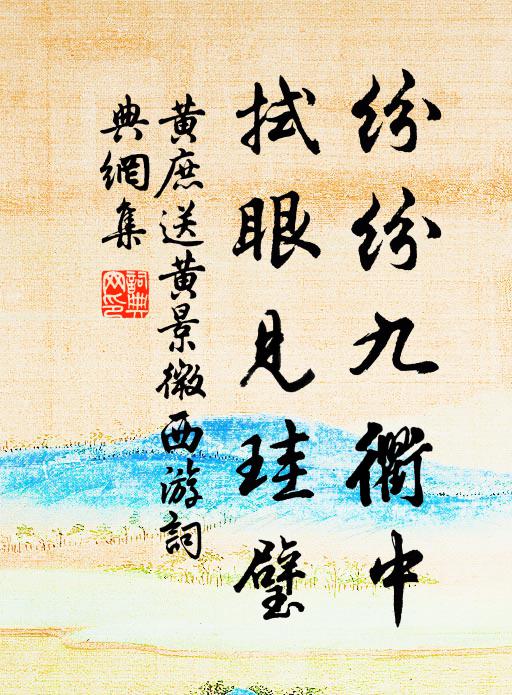 紛紛九衢中
拭眼見珪璧
黄庶送黄景微西游詞
典網集
詞典网印